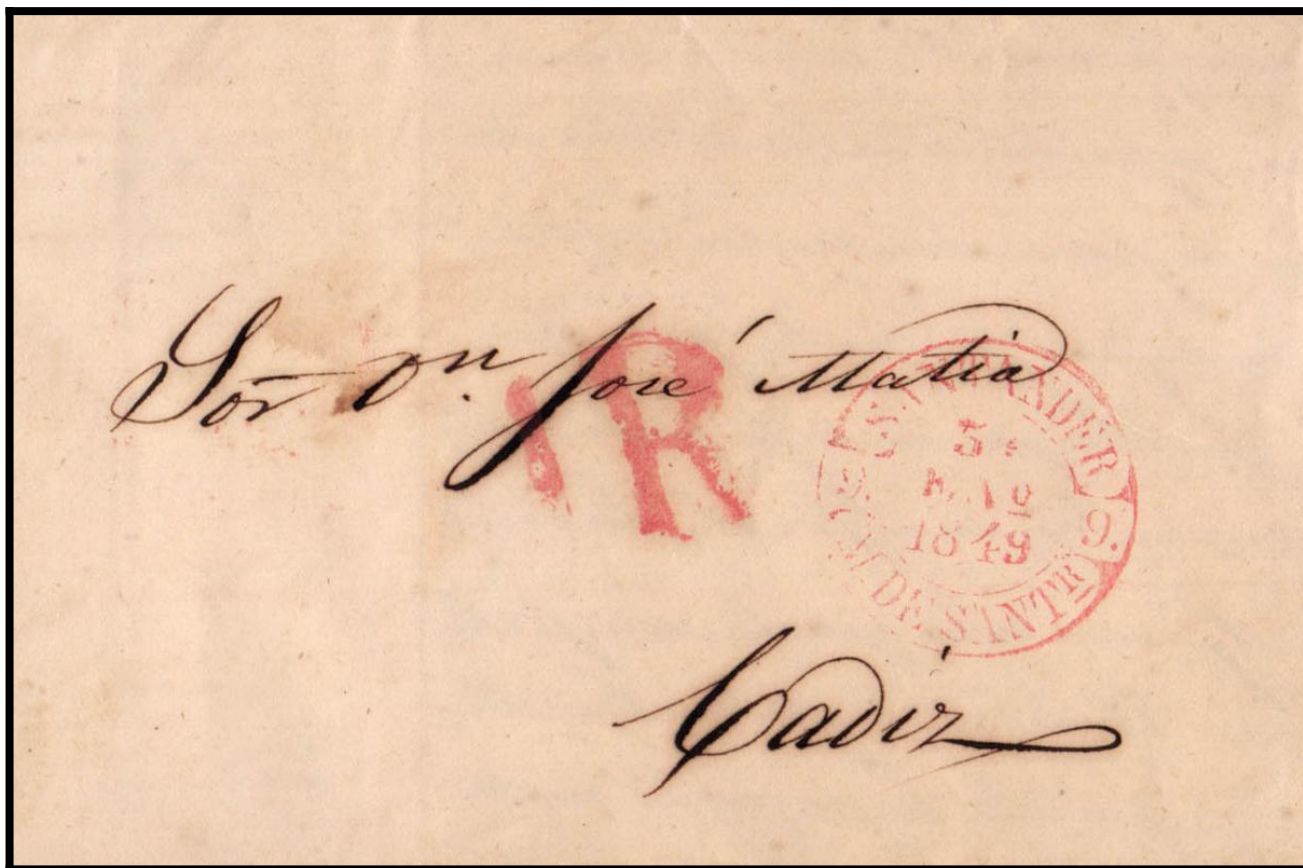 Sor. Dn. José Matia
1R
SANTANDER
MAYO
1849
9.
M. DE SANTR
Cadiz